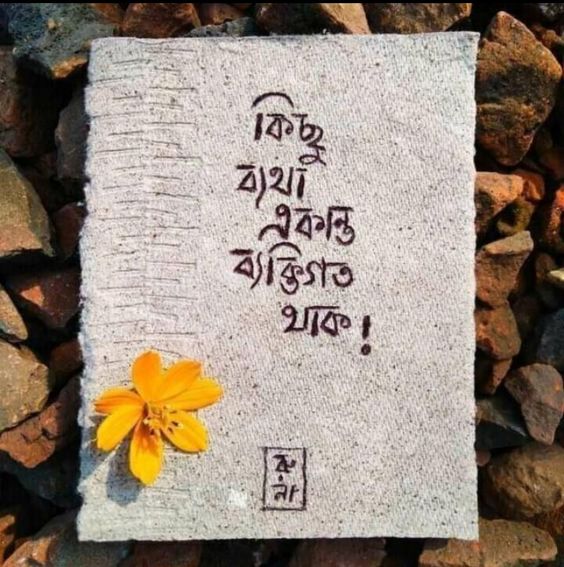 কিছু
ব্যথা
একান্ত
ব্যক্তিগত
থাক!
রু
না